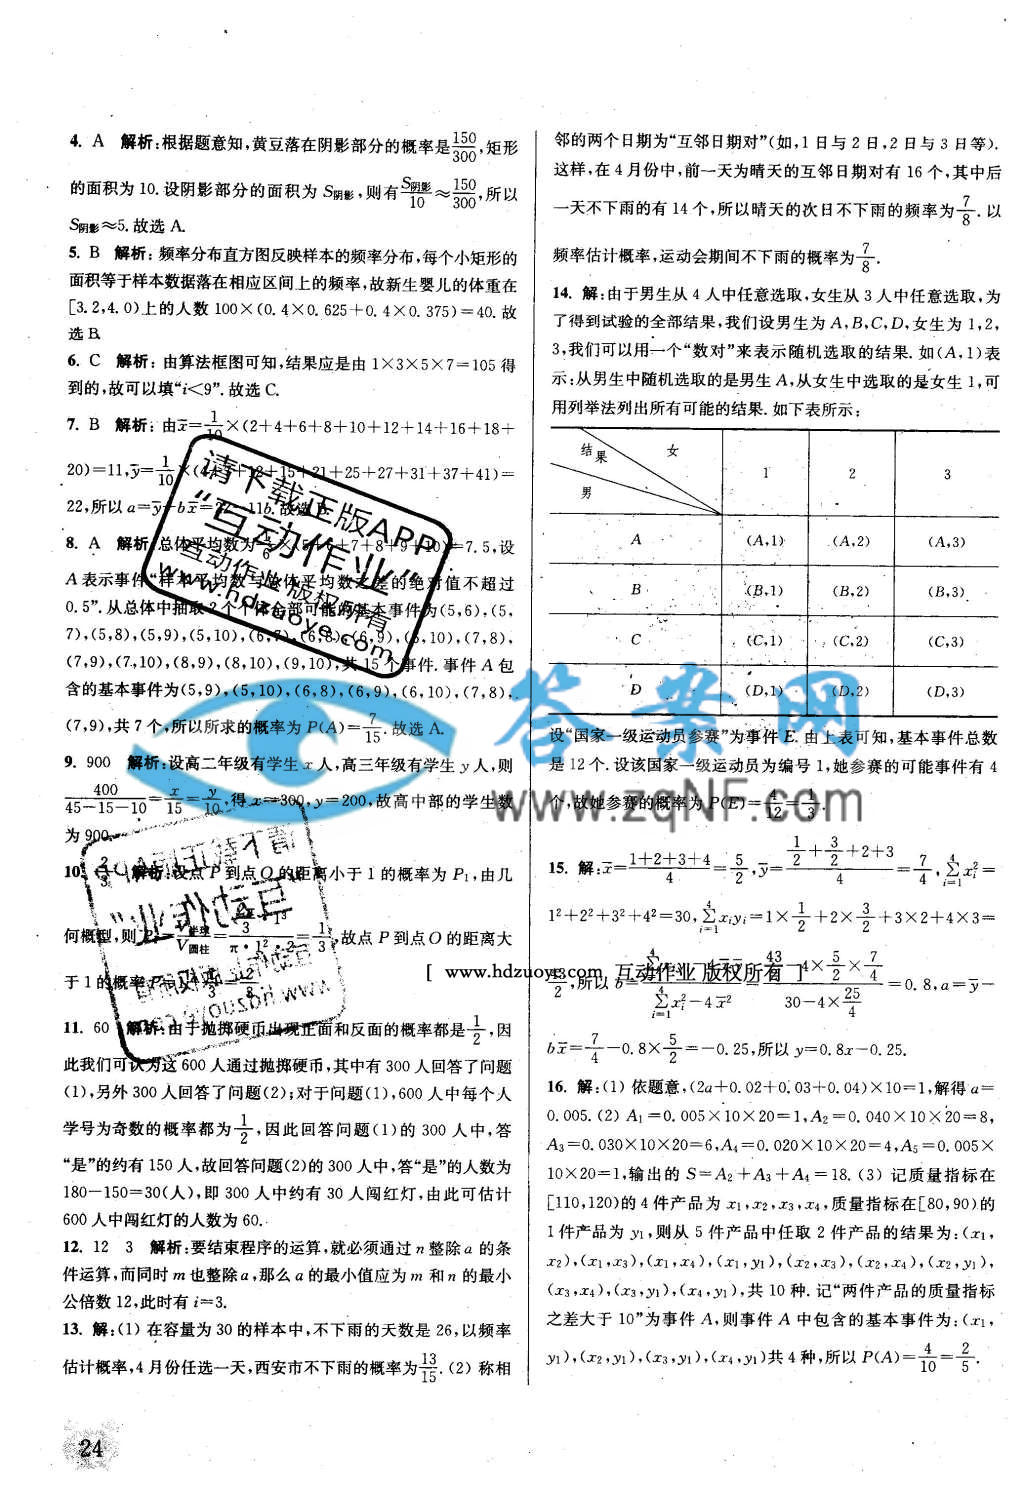 4. A 解析:根据题意知,黄豆落在阴影部分的概率是150/300,矩形
的面积为 10. 设阴影部分的面积为 S阴影,则有S阴影/10≈150/300,所以
S阴影≈5. 故选 A.
5. B 解析:频率分布直方图反映样本的频率分布,每个小矩形的
面积等于样本数据落在相应区间上的频率,故新生婴儿的体重在
[3.2,4.0)上的人数 100×(0.4×0.625+0.4×0.375)=40. 故
选 B.
6. C 解析:由算法框图可知,结果应是由 1×3×5×7=105 得
到的,故可以填“i<9”. 故选 C.
7. B 解析:由x̄=1/10×(2+4+6+8+10+12+14+16+18+
20)=11,ȳ=1/10×(4+ +12+15+21+25+27+31+37+41)=
22,所以 a=ȳ-bx̄=22-11b. 故选 B.
8. A 解析:总体平均数为1/6×(5+6+7+8+9+10)=7.5,设
A 表示事件“样本平均数与总体平均数之差的绝对值不超过
0.5”. 从总体中抽取 2 个个体全部可能的基本事件为(5,6),(5,
7),(5,8),(5,9),(5,10),(6,7),(6,8),(6,9),(6,10),(7,8),
(7,9),(7,10),(8,9),(8,10),(9,10),共 15 个事件. 事件 A 包
含的基本事件为(5,9),(5,10),(6,8),(6,9),(6,10),(7,8),
(7,9),共 7 个,所以所求的概率为 P(A)=7/15. 故选 A.
9. 900 解析:设高二年级有学生 x 人,高三年级有学生 y 人,则
400/(45-15-10)=x/15=y/10,得 x=300,y=200,故高中部的学生数
为 900.
10. 2/3 解析:设点 P 到点 O 的距离小于 1 的概率为 P₁,由几
何概型,则 P₁=V半球/V圆柱= /(π·1²·2)=1/3,故点 P 到点 O 的距离大
于 1 的概率 P=1-1/3=2/3.
11. 60 解析:由于抛掷硬币出现正面和反面的概率都是1/2,因
此我们可认为这 600 人通过抛掷硬币,其中有 300 人回答了问题
(1),另外 300 人回答了问题(2);对于问题(1),600 人中每个人
学号为奇数的概率都为1/2,因此回答问题(1)的 300 人中,答
“是”的约有 150 人,故回答问题(2)的 300 人中,答“是”的人数为
180-150=30(人),即 300 人中约有 30 人闯红灯,由此可估计
600 人中闯红灯的人数为 60.
12. 12 3 解析:要结束程序的运算,就必须通过 n 整除 a 的条
件运算,而同时 m 也整除 a,那么 a 的最小值应为 m 和 n 的最小
公倍数 12,此时有 i=3.
13. 解:(1) 在容量为 30 的样本中,不下雨的天数是 26,以频率
估计概率,4 月份任选一天,西安市不下雨的概率为13/15. (2) 称相
邻的两个日期为“互邻日期对”(如,1 日与 2 日,2 日与 3 日等).
这样,在 4 月份中,前一天为晴天的互邻日期对有 16 个,其中后
一天不下雨的有 14 个,所以晴天的次日不下雨的频率为7/8. 以
频率估计概率,运动会期间不下雨的概率为7/8.
14. 解:由于男生从 4 人中任意选取,女生从 3 人中任意选取,为
了得到试验的全部结果,我们设男生为 A,B,C,D,女生为 1,2,
3,我们可以用一个“数对”来表示随机选取的结果. 如(A,1)表
示:从男生中随机选取的是男生 A,从女生中选取的是女生 1,可
用列举法列出所有可能的结果. 如下表所示:
结果 女 男 1 2 3
A (A,1) (A,2) (A,3)
B (B,1) (B,2) (B,3)
C (C,1) (C,2) (C,3)
D (D,1) (D,2) (D,3)
设“国家一级运动员参赛”为事件 E. 由上表可知,基本事件总数
是 12 个. 设该国家一级运动员为编号 1,她参赛的可能事件有 4
个,故她参赛的概率为 P(E)=4/12=1/3.
15. 解:x̄=(1+2+3+4)/4=5/2,ȳ=(1/2+3/2+2+3)/4=7/4,∑(i=1→4)xᵢ²=
1²+2²+3²+4²=30,∑(i=1→4)xᵢyᵢ=1×1/2+2×3/2+3×2+4×3=
43/2,所以 b= /(∑(i=1→4)xᵢ²-4x̄²)=(43/2-4×5/2×7/4)/(30-4×25/4)=0.8,a=ȳ-
bx̄=7/4-0.8×5/2=-0.25,所以 y=0.8x-0.25.
16. 解:(1) 依题意,(2a+0.02+0.03+0.04)×10=1,解得 a=
0.005. (2) A₁=0.005×10×20=1,A₂=0.040×10×20=8,
A₃=0.030×10×20=6,A₄=0.020×10×20=4,A₅=0.005×
10×20=1,输出的 S=A₂+A₃+A₄=18. (3) 记质量指标在
[110,120)的 4 件产品为 x₁,x₂,x₃,x₄,质量指标在[80,90)的
1 件产品为 y₁,则从 5 件产品中任取 2 件产品的结果为:(x₁,
x₂),(x₁,x₃),(x₁,x₄),(x₁,y₁),(x₂,x₃),(x₂,x₄),(x₂,y₁),
(x₃,x₄),(x₃,y₁),(x₄,y₁),共 10 种. 记“两件产品的质量指标
之差大于 10”为事件 A,则事件 A 中包含的基本事件为:(x₁,
y₁),(x₂,y₁),(x₃,y₁),(x₄,y₁)共 4 种,所以 P(A)=4/10=2/5.
24
请下载正版APP
“互动作业”
互动作业 版权所有
www.hdzuoye.com
答案网
www.zqNF.com
[ www.hdzuoye.com 互动作业 版权所有 ]